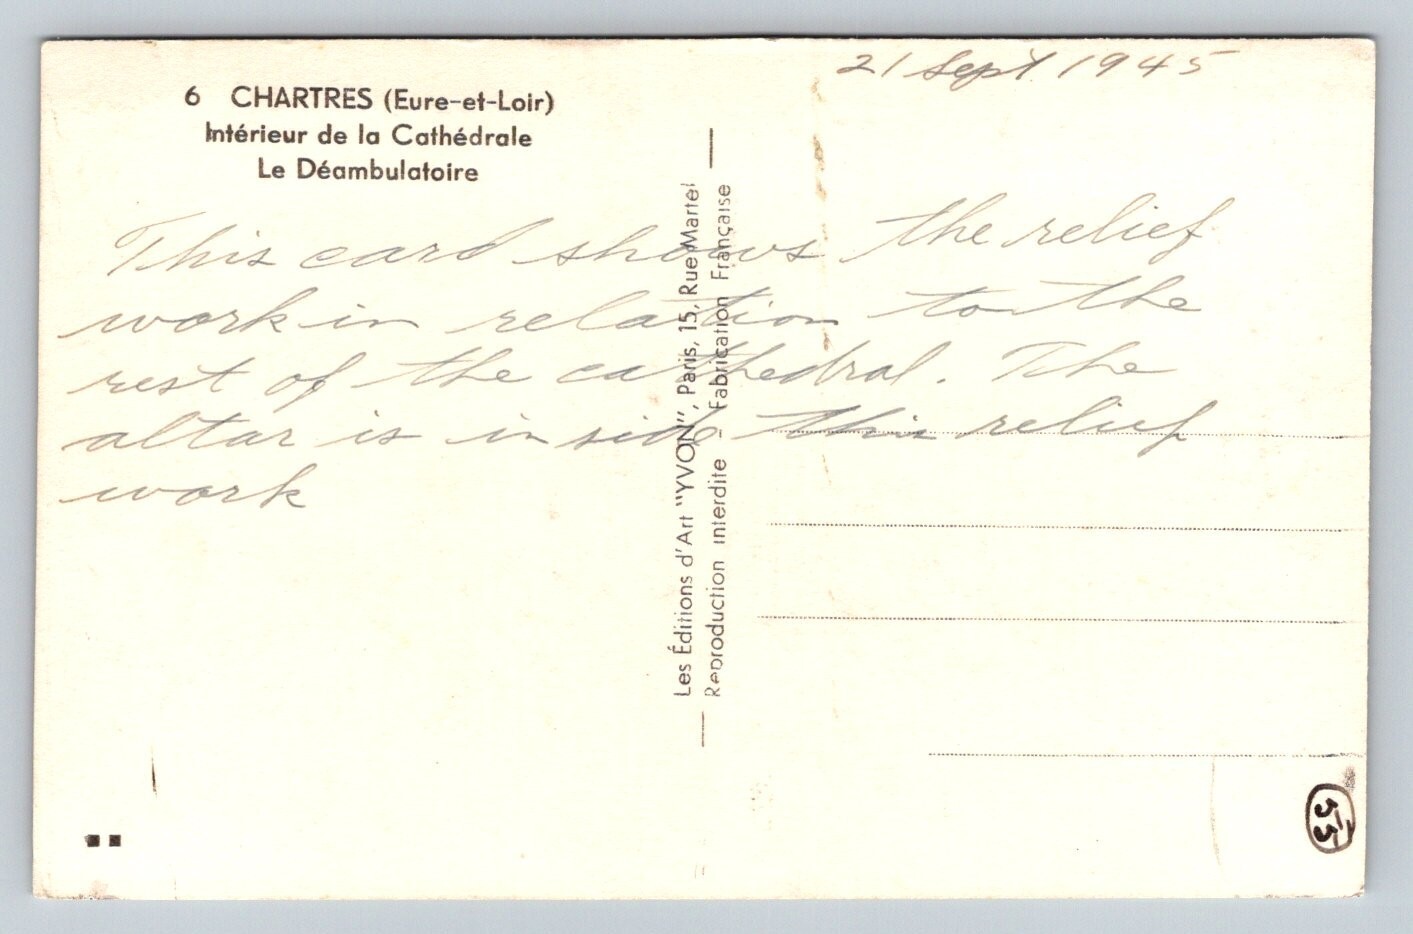 21 Sept 1945
6 CHARTRES (Eure-et-Loir)
Intérieur de la Cathédrale
Le Déambulatoire
This card shows the relief
work in relation to the
rest of the cathedral. The
altar is inside this relief
work
Les Éditions d'Art "YVON", Paris, 15, Rue Martel
Reproduction interdite - Fabrication Française
55